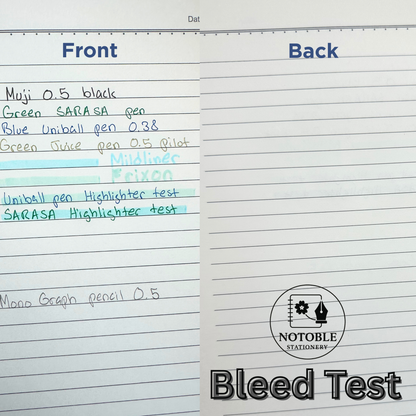 Dat
Front
Back
Muji 0.5 black
Green SARASA pen
Blue Uniball pen 0.38
Green Juice pen 0.5 pilot
Mildliner
Frixon
Uniball pen Highlighter test
SARASA Highlighter test
Mono Graph pencil 0.5
NOTOBLE
STATIONERY
Bleed Test